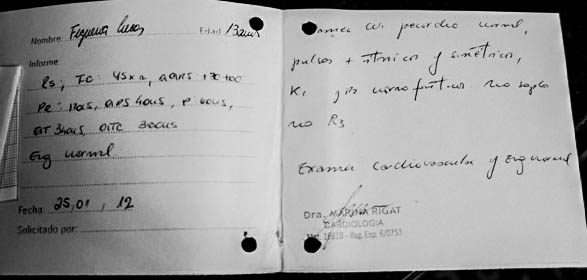 Nombre: Figueroa Lucas Edad 13 años
Informe
Rs, FC: 75 x m, AQRS +70 +60°
PR: 120 ms, QRS 40 ms, P 60 ms,
QT 340 ms, QTc 380 ms
Erg normal.
Fecha: 25, 01, 12
Solicitado por:
Examen CV periordio normal,
pulsos + rítmicos y simétricos,
R1 y R2 normofonéticos no soplo
no R3
Examen cardiovascular y Erg normal
Dra. MARINA RIGAT
CARDIOLOGIA
16610 - Reg. Esp. 6/0753